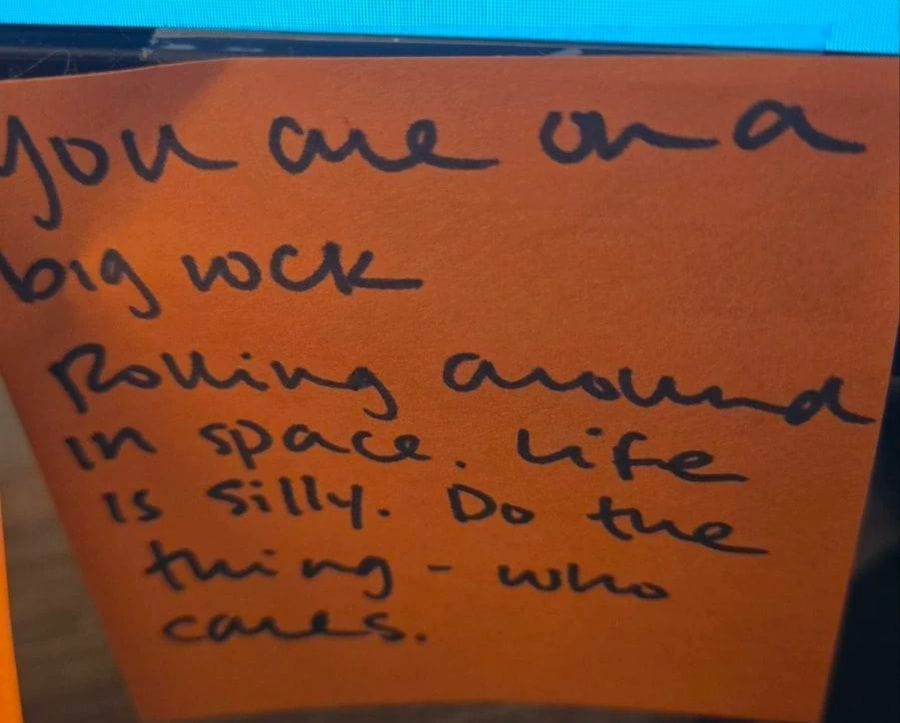 You are on a
big rock
Rolling around
in space. Life
is silly. Do the
thing - who
cares.